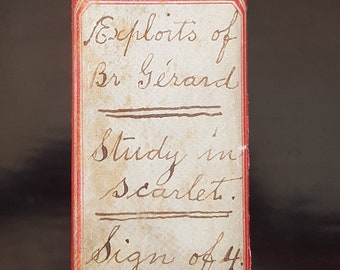 Exploits of
Br Gérard
Study in
Scarlet.
Sign of 4.